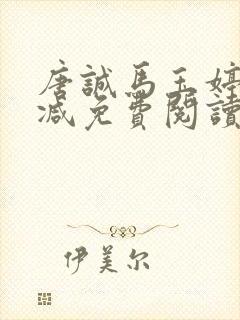 唐誠馬玉婷
減免費閱讀
伊美尔